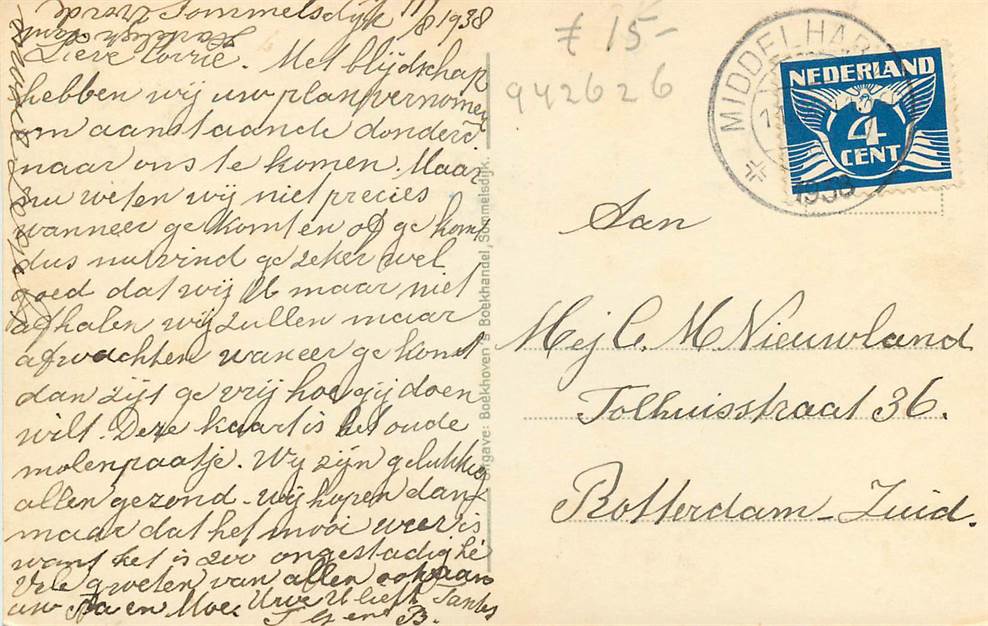 Sommelsdijk 11/8 1938
Hartelijk dank
Lieve Corrie. Met blijdschap
hebben wij uw plan vernomen
om aanstaande donderd.
naar ons te komen. Maar
nu weten wij niet precies
wanneer ge komt en of ge komt
dus nu vind ge zeker wel
goed dat wij U maar niet
afhalen wij zullen maar
afwachten waneer ge komt
dan zijt ge vrij hoe gij doen
wilt. Deze kaart is het oude
molenpaatje. Wij zijn gelukkig
allen gezond. wij hopen dan
maar dat het mooi weer is
want het is zoo ongestadig hé
Vele groeten van allen ook aan
uw Pa en Moe Uwe U lieft. Tantes
en B.
Uitgave: Boekhoven's Boekhandel, Sommelsdijk.
£ 15-
942626
MIDDELHAR
1938
NEDERLAND
4
CENT
Aan
Mej C. M Nieuwland
Tolhuisstraat 36.
Rotterdam-Zuid.